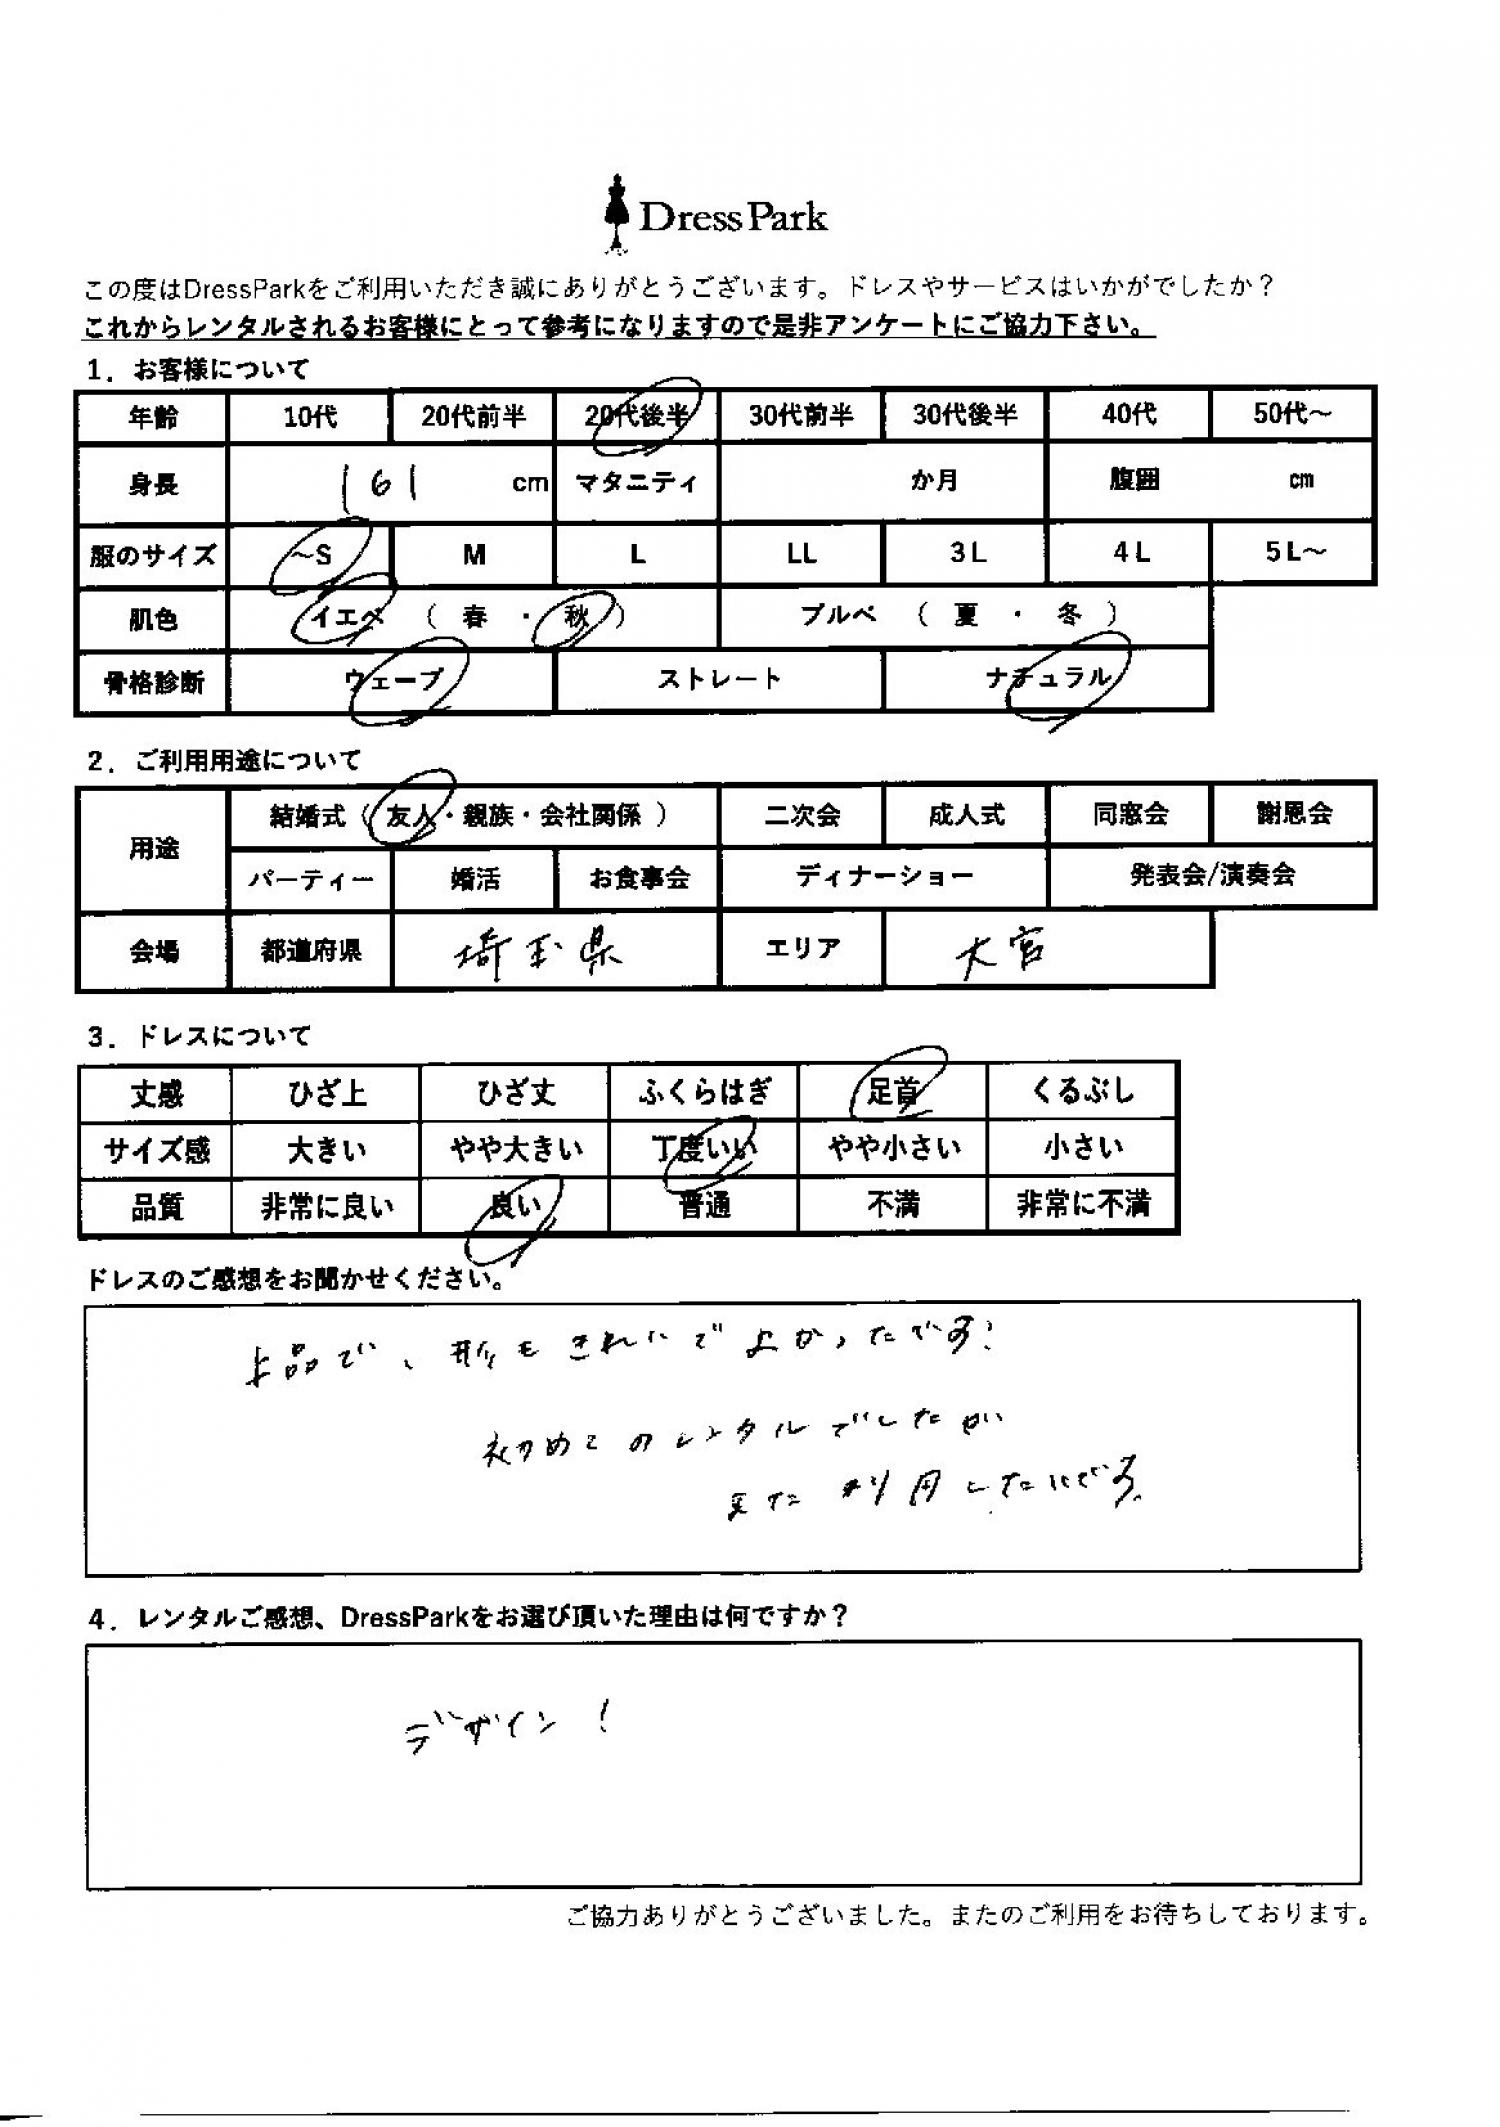 Dress Park
この度はDressParkをご利用いただき誠にありがとうございます。ドレスやサービスはいかがでしたか？
これからレンタルされるお客様にとって参考になりますので是非アンケートにご協力下さい。
1．お客様について
年齢 10代 20代前半 20代後半 30代前半 30代後半 40代 50代～
身長 161 cm マタニティ か月 腹囲 cm
服のサイズ ～S M L LL 3L 4L 5L～
肌色 イエベ （ 春 ・ 秋 ） ブルベ （ 夏 ・ 冬 ）
骨格診断 ウェーブ ストレート ナチュラル
2．ご利用用途について
用途 結婚式（ 友人・親族・会社関係 ） 二次会 成人式 同窓会 謝恩会
パーティー 婚活 お食事会 ディナーショー 発表会/演奏会
会場 都道府県 埼玉県 エリア 大宮
3．ドレスについて
丈感 ひざ上 ひざ丈 ふくらはぎ 足首 くるぶし
サイズ感 大きい やや大きい 丁度いい やや小さい 小さい
品質 非常に良い 良い 普通 不満 非常に不満
ドレスのご感想をお聞かせください。
上品で、形もきれいでよかったです!
初めてのレンタルでしたが
また利用したいです。
4．レンタルご感想、DressParkをお選び頂いた理由は何ですか？
デザイン！
ご協力ありがとうございました。またのご利用をお待ちしております。